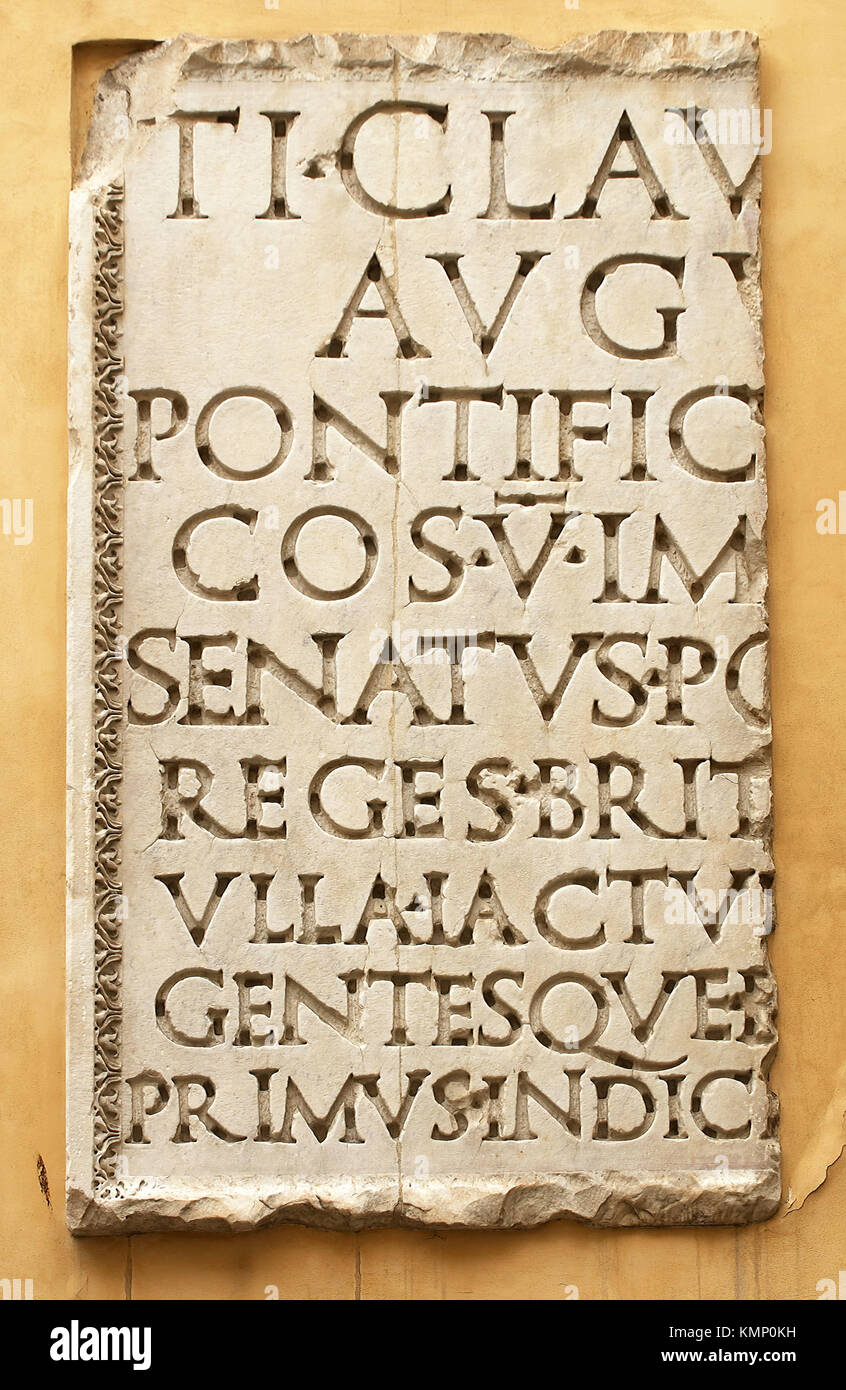 TI·CLAV
AVG
PONTIFIC
COS·V̅·IM
SENATVS·PO
REGES·BRIT
VLLA·IACTV
GENTESQVEB
PRIMVS·INDIC
alamy
Image ID: KMP0KH
www.alamy.com